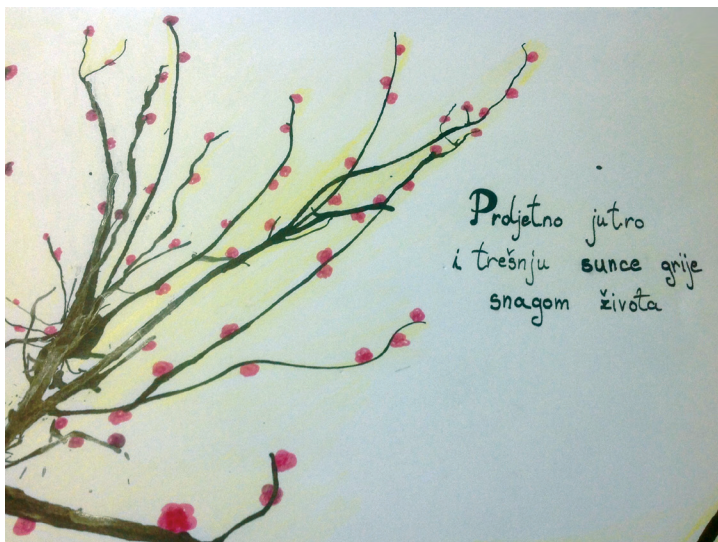 Proljetno jutro
i trešnju sunce grije
snagom života